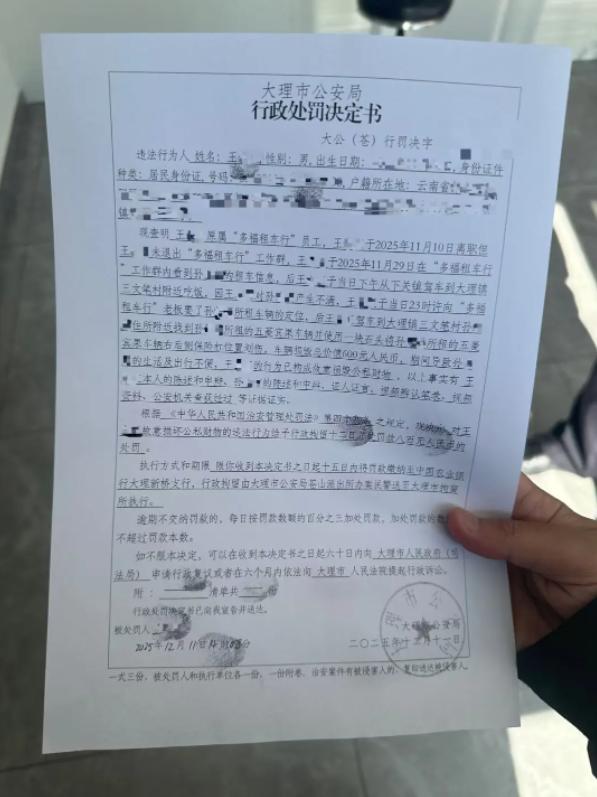 大理市公安局
行政处罚决定书
大公(苍)行罚决字
违法行为人 姓名:王 ,性别:男,出生日期: ,身份证件
种类:居民身份证,号码: ,户籍所在地:云南省
镇
现查明 王 原属“多福租车行”员工,王 于2025年11月10日离职但
王 未退出“多福租车行”工作群,王 于2025年11月29日在“多福租车行
”工作群内看到孙 的租车信息,后王 子当日下午从下关镇驾车到大理镇
三文笔村附近吃饭,因王 对孙 产生不满,王 子当日23时许向“多福
租车行”老板要了孙 所租车辆的定位,后王 驾车到大理镇三文笔村孙
住所附近找到孙 所租的五菱宾果车辆并使用一块石头将孙 所租的五菱
宾果车辆右后侧保险杠位置划伤,车辆损毁总价值600元人民币,期间导致孙
的生活及出行不便,王 的行为已构成故意损毁公私财物,以上事实有 王
本人的陈述和申辩,孙 的陈述和申辩,证人证言,视频辨认笔录,视频
资料,公安机关查获经过 等证据证实。
根据 《中华人民共和国治安管理处罚法》第四十九条 之规定,现决定 对王
故意损坏公私财物的违法行为给予行政拘留十 日 处罚款八百元人民币的
处罚。
执行方式和期限 限你收到本决定书之日起十五日内将罚款缴纳至中国农业银
行大理新桥支行,行政拘留由大理市公安局苍山派出所办案民警送至大理市拘留
所执行。
逾期不交纳罚款的,每日按罚款数额的百分之三加处罚款,加处罚款的数
不超过罚款本数。
如不服本决定,可以在收到本决定书之日起六十日内向 大理市人民政府(司
法局) 申请行政复议或者在六个月内依法向 大理市 人民法院提起行政诉讼。
附: 清单共 份
行政处罚决定书已向我宣告并送达。
被处罚人 大理市公安局
2025年12月11日 二〇二五年十二月十一日
一式三份,被处罚人和执行单位各一份,一份附卷。治安案件有被侵害人的,复印送达被侵害人